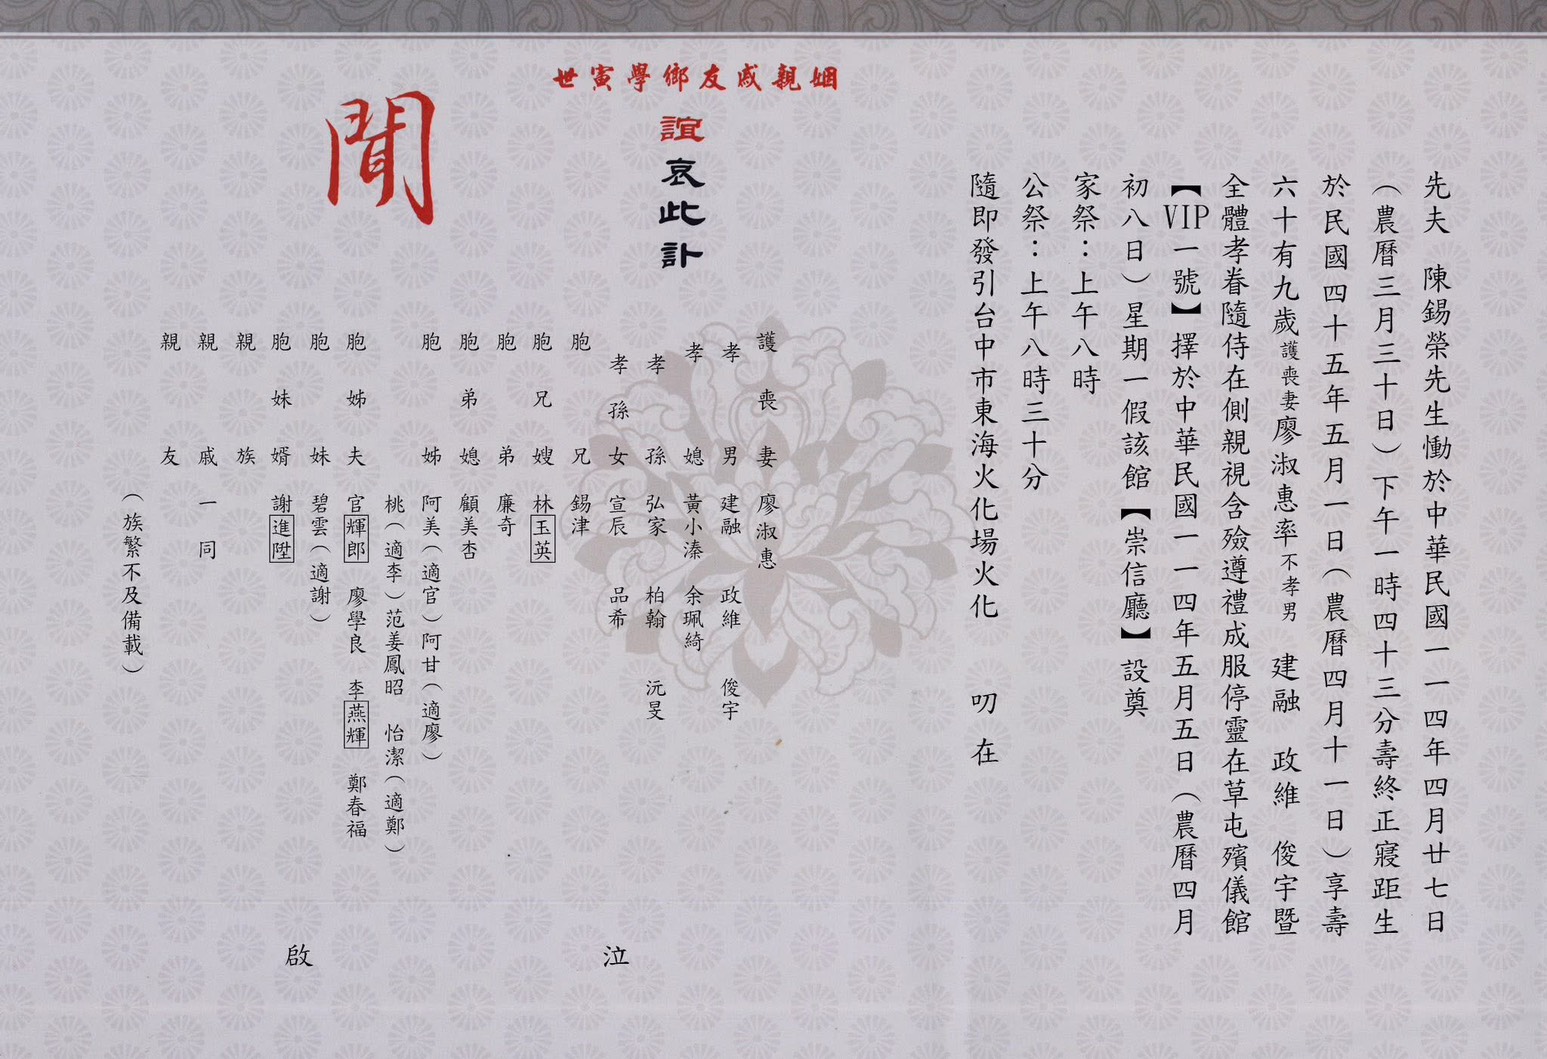 先夫　陳錫榮先生慟於中華民國一一四年四月廿七日
（農曆三月三十日）下午一時四十三分壽終正寢距生
於民國四十五年五月一日（農曆四月十一日）享壽
六十有九歲護喪妻廖淑惠率不孝男　建融　政維　俊宇暨
全體孝眷隨侍在側親視含殮遵禮成服停靈在草屯殯儀館
【VIP一號】擇於中華民國一一四年五月五日（農曆四月
初八日）星期一假該館【崇信廳】設奠
家祭：上午八時
公祭：上午八時三十分
隨即發引台中市東海火化場火化　　叨在
姻親戚友鄉學寅世
誼哀此訃
聞
護喪妻　廖淑惠
孝男　建融　政維　俊宇
孝媳　黃小溱　余珮綺
孝孫　弘家　柏翰　沅旻
孝孫女　宣辰　品希
泣
胞兄　錫津
胞兄嫂　林玉英
胞弟　廉奇
胞弟媳　顧美杏
胞姊　阿美（適官）阿甘（適廖）
桃（適李）范姜鳳昭　怡潔（適鄭）
胞姊夫　官輝郎　廖學良　李燕輝　鄭春福
胞妹　碧雲（適謝）
胞妹婿　謝進陞
親族
親戚一同
親友
（族繁不及備載）
啟